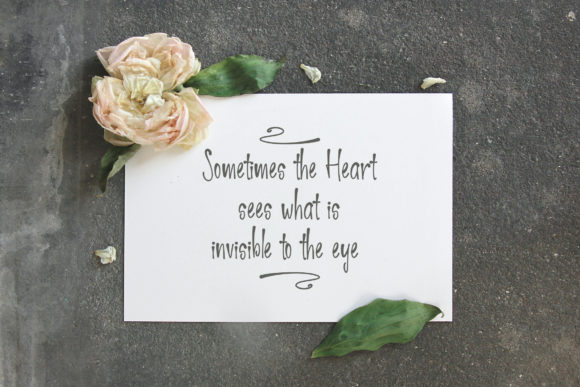 Sometimes the Heart
sees what is
invisible to the eye